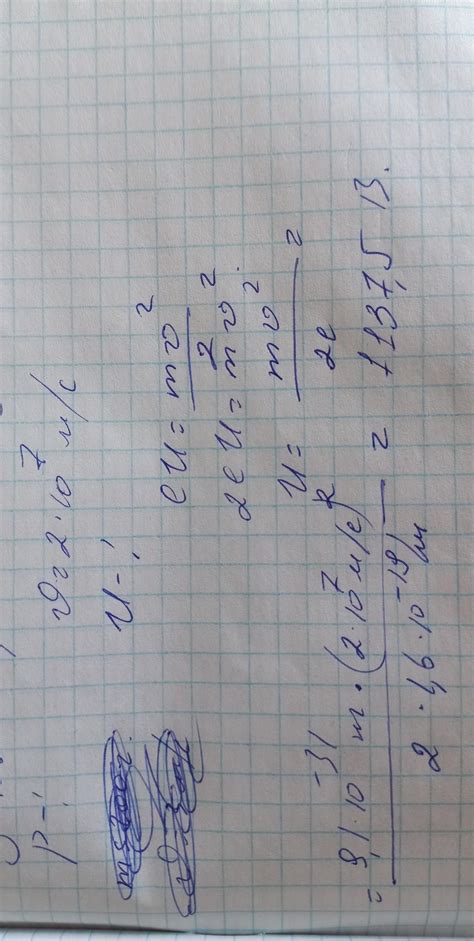 p - ?
υ = 2 · 10⁷ м/с
U - ?
eU = mυ² / 2
2eU = mυ².
U = mυ² / 2e =
= 9,1 · 10⁻³¹ m · (2 · 10⁷ м/с)² / 2 · 1,6 · 10⁻¹⁹ = 1137,5 В.